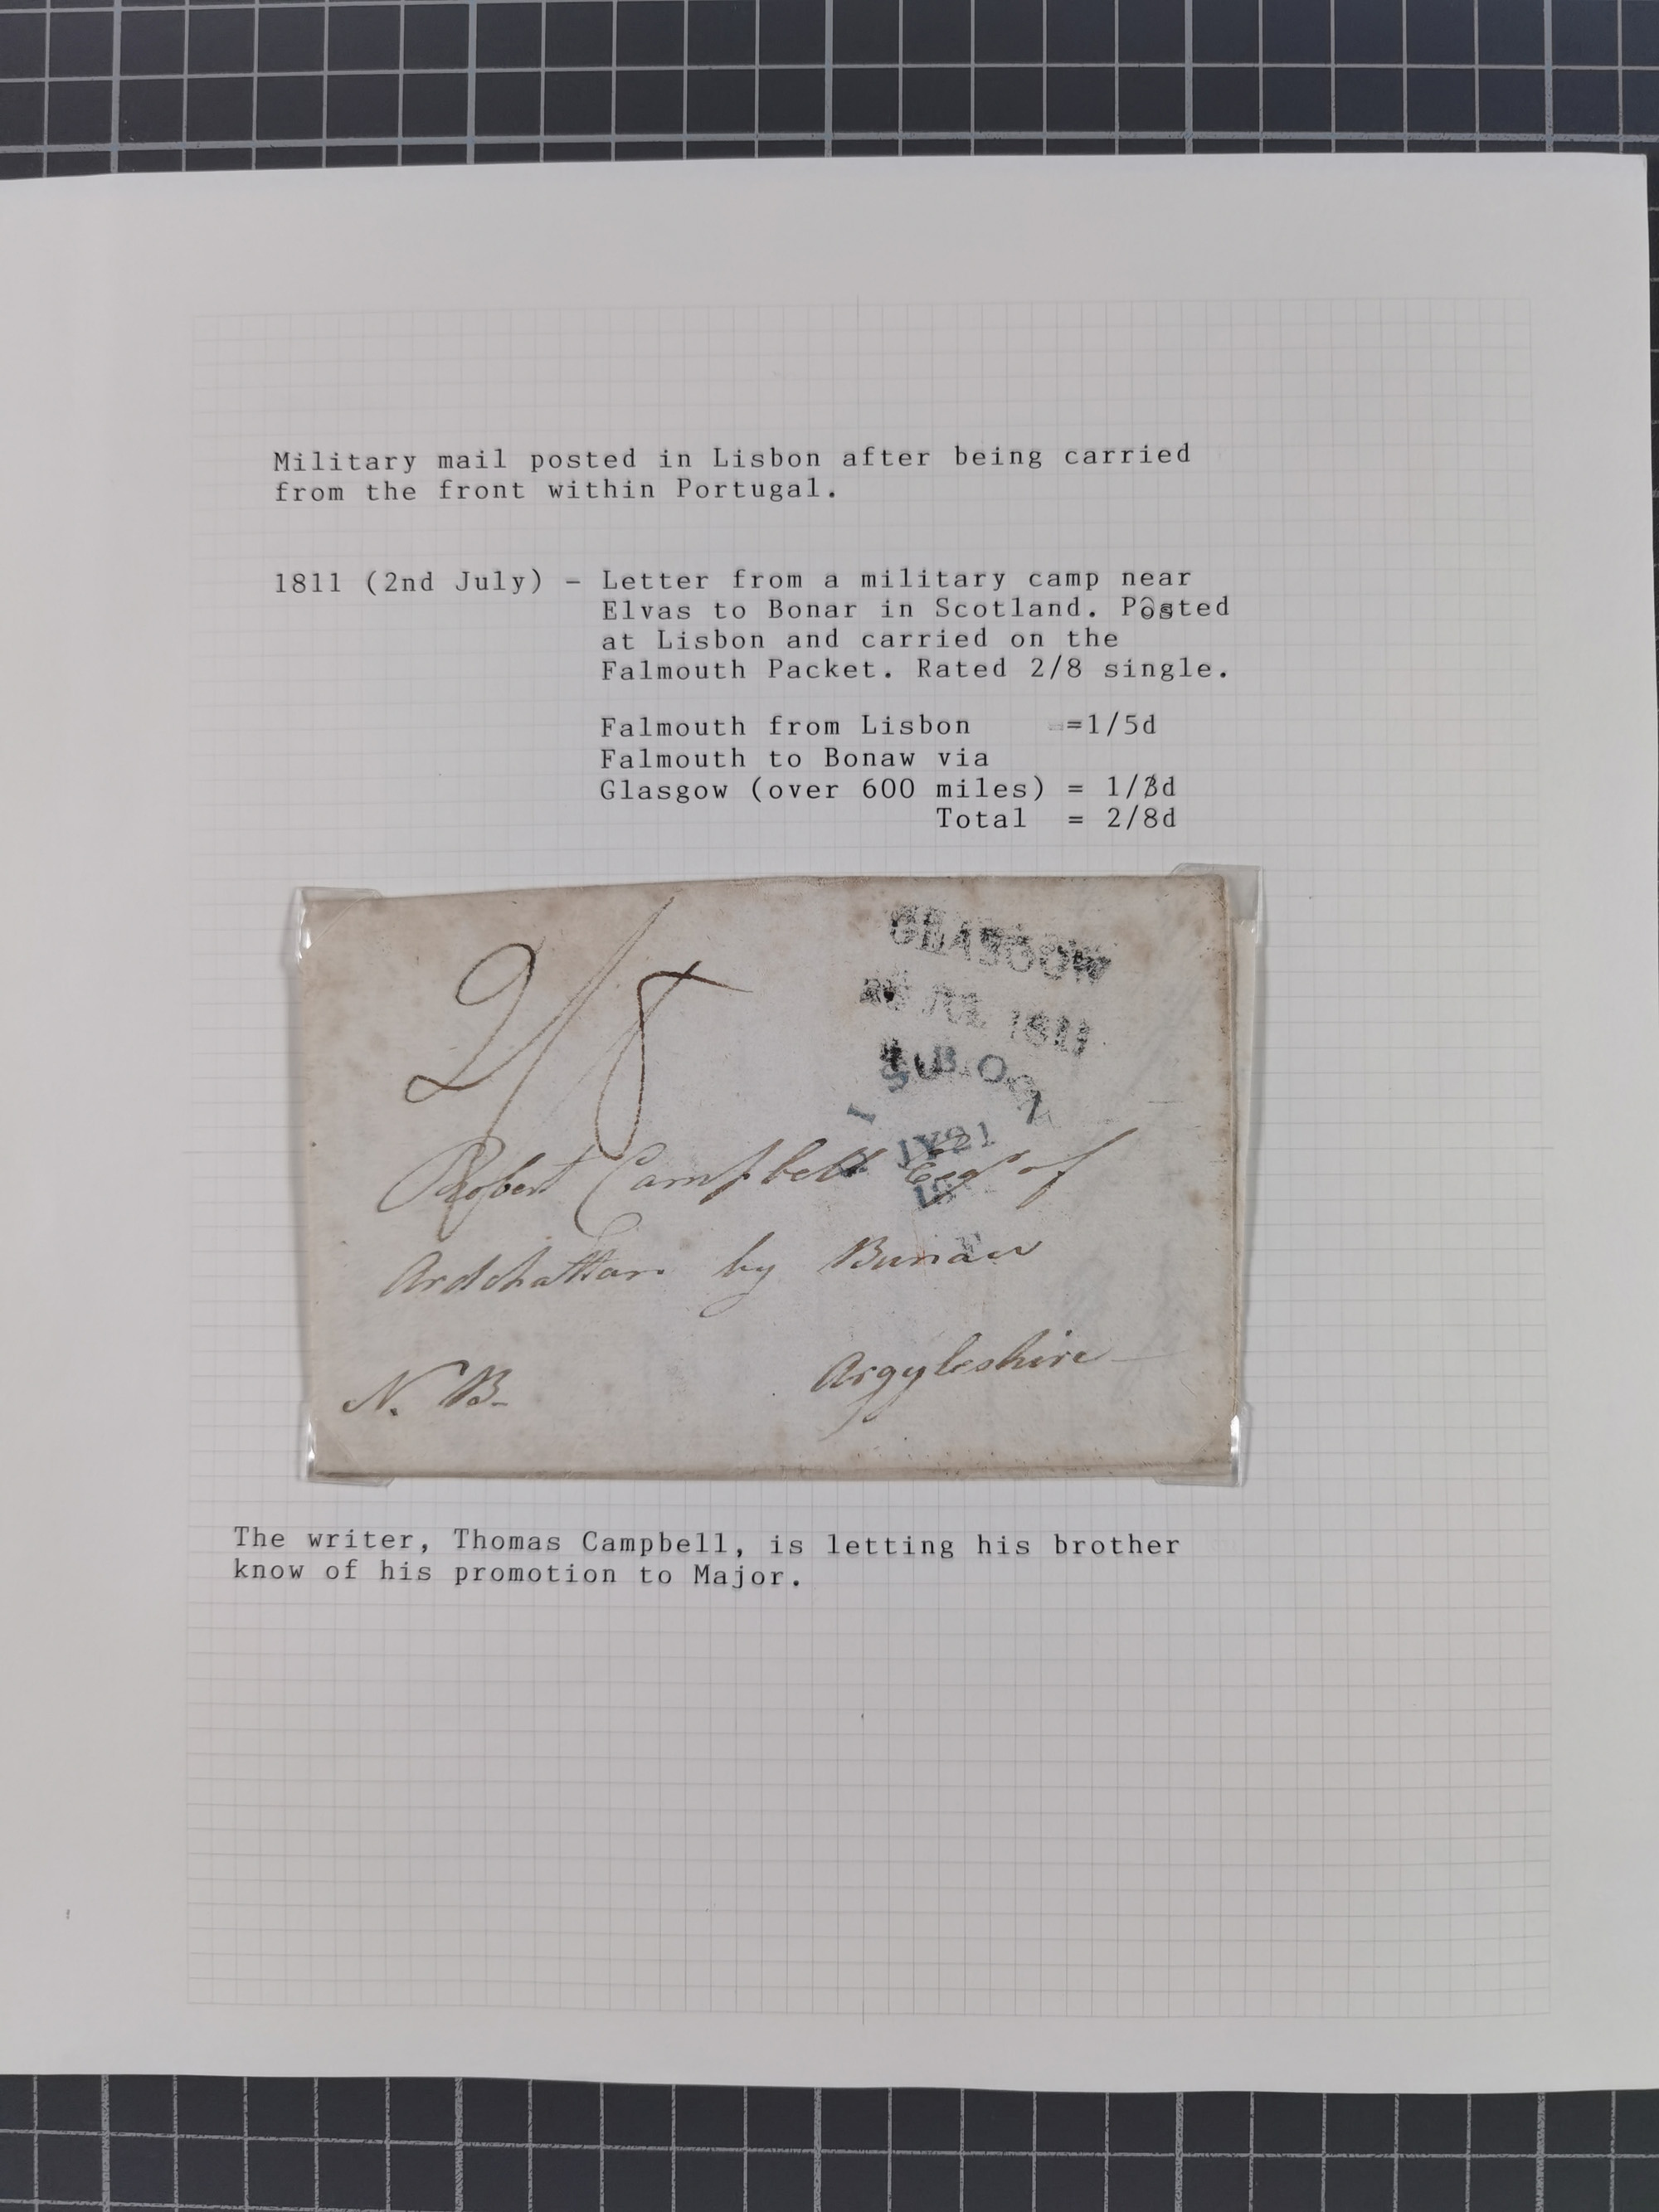 Military mail posted in Lisbon after being carried
from the front within Portugal.
1811 (2nd July) – Letter from a military camp near
Elvas to Bonar in Scotland. Posted
at Lisbon and carried on the
Falmouth Packet. Rated 2/8 single.
Falmouth from Lisbon =1/5d
Falmouth to Bonaw via
Glasgow (over 600 miles) = 1/3d
Total = 2/8d
2/8
GLASGOW
JUL 1811
LISBON
JY 21
Robert Campbell Esqr of
Ardchattan by Bunaw
Argyleshire
N. B.
The writer, Thomas Campbell, is letting his brother
know of his promotion to Major.